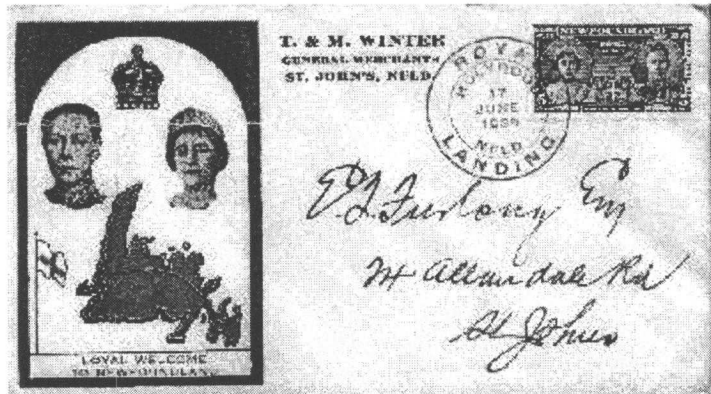 T. & M. WINTER
GENERAL MERCHANTS
ST. JOHN'S, NFLD.
NEWFOUNDLAND
ROYAL
HOLYROOD
17
JUNE
1939
NFLD.
LANDING
Furlong Esq
Allandale Rd
St Johns
LOYAL WELCOME
TO NEWFOUNDLAND